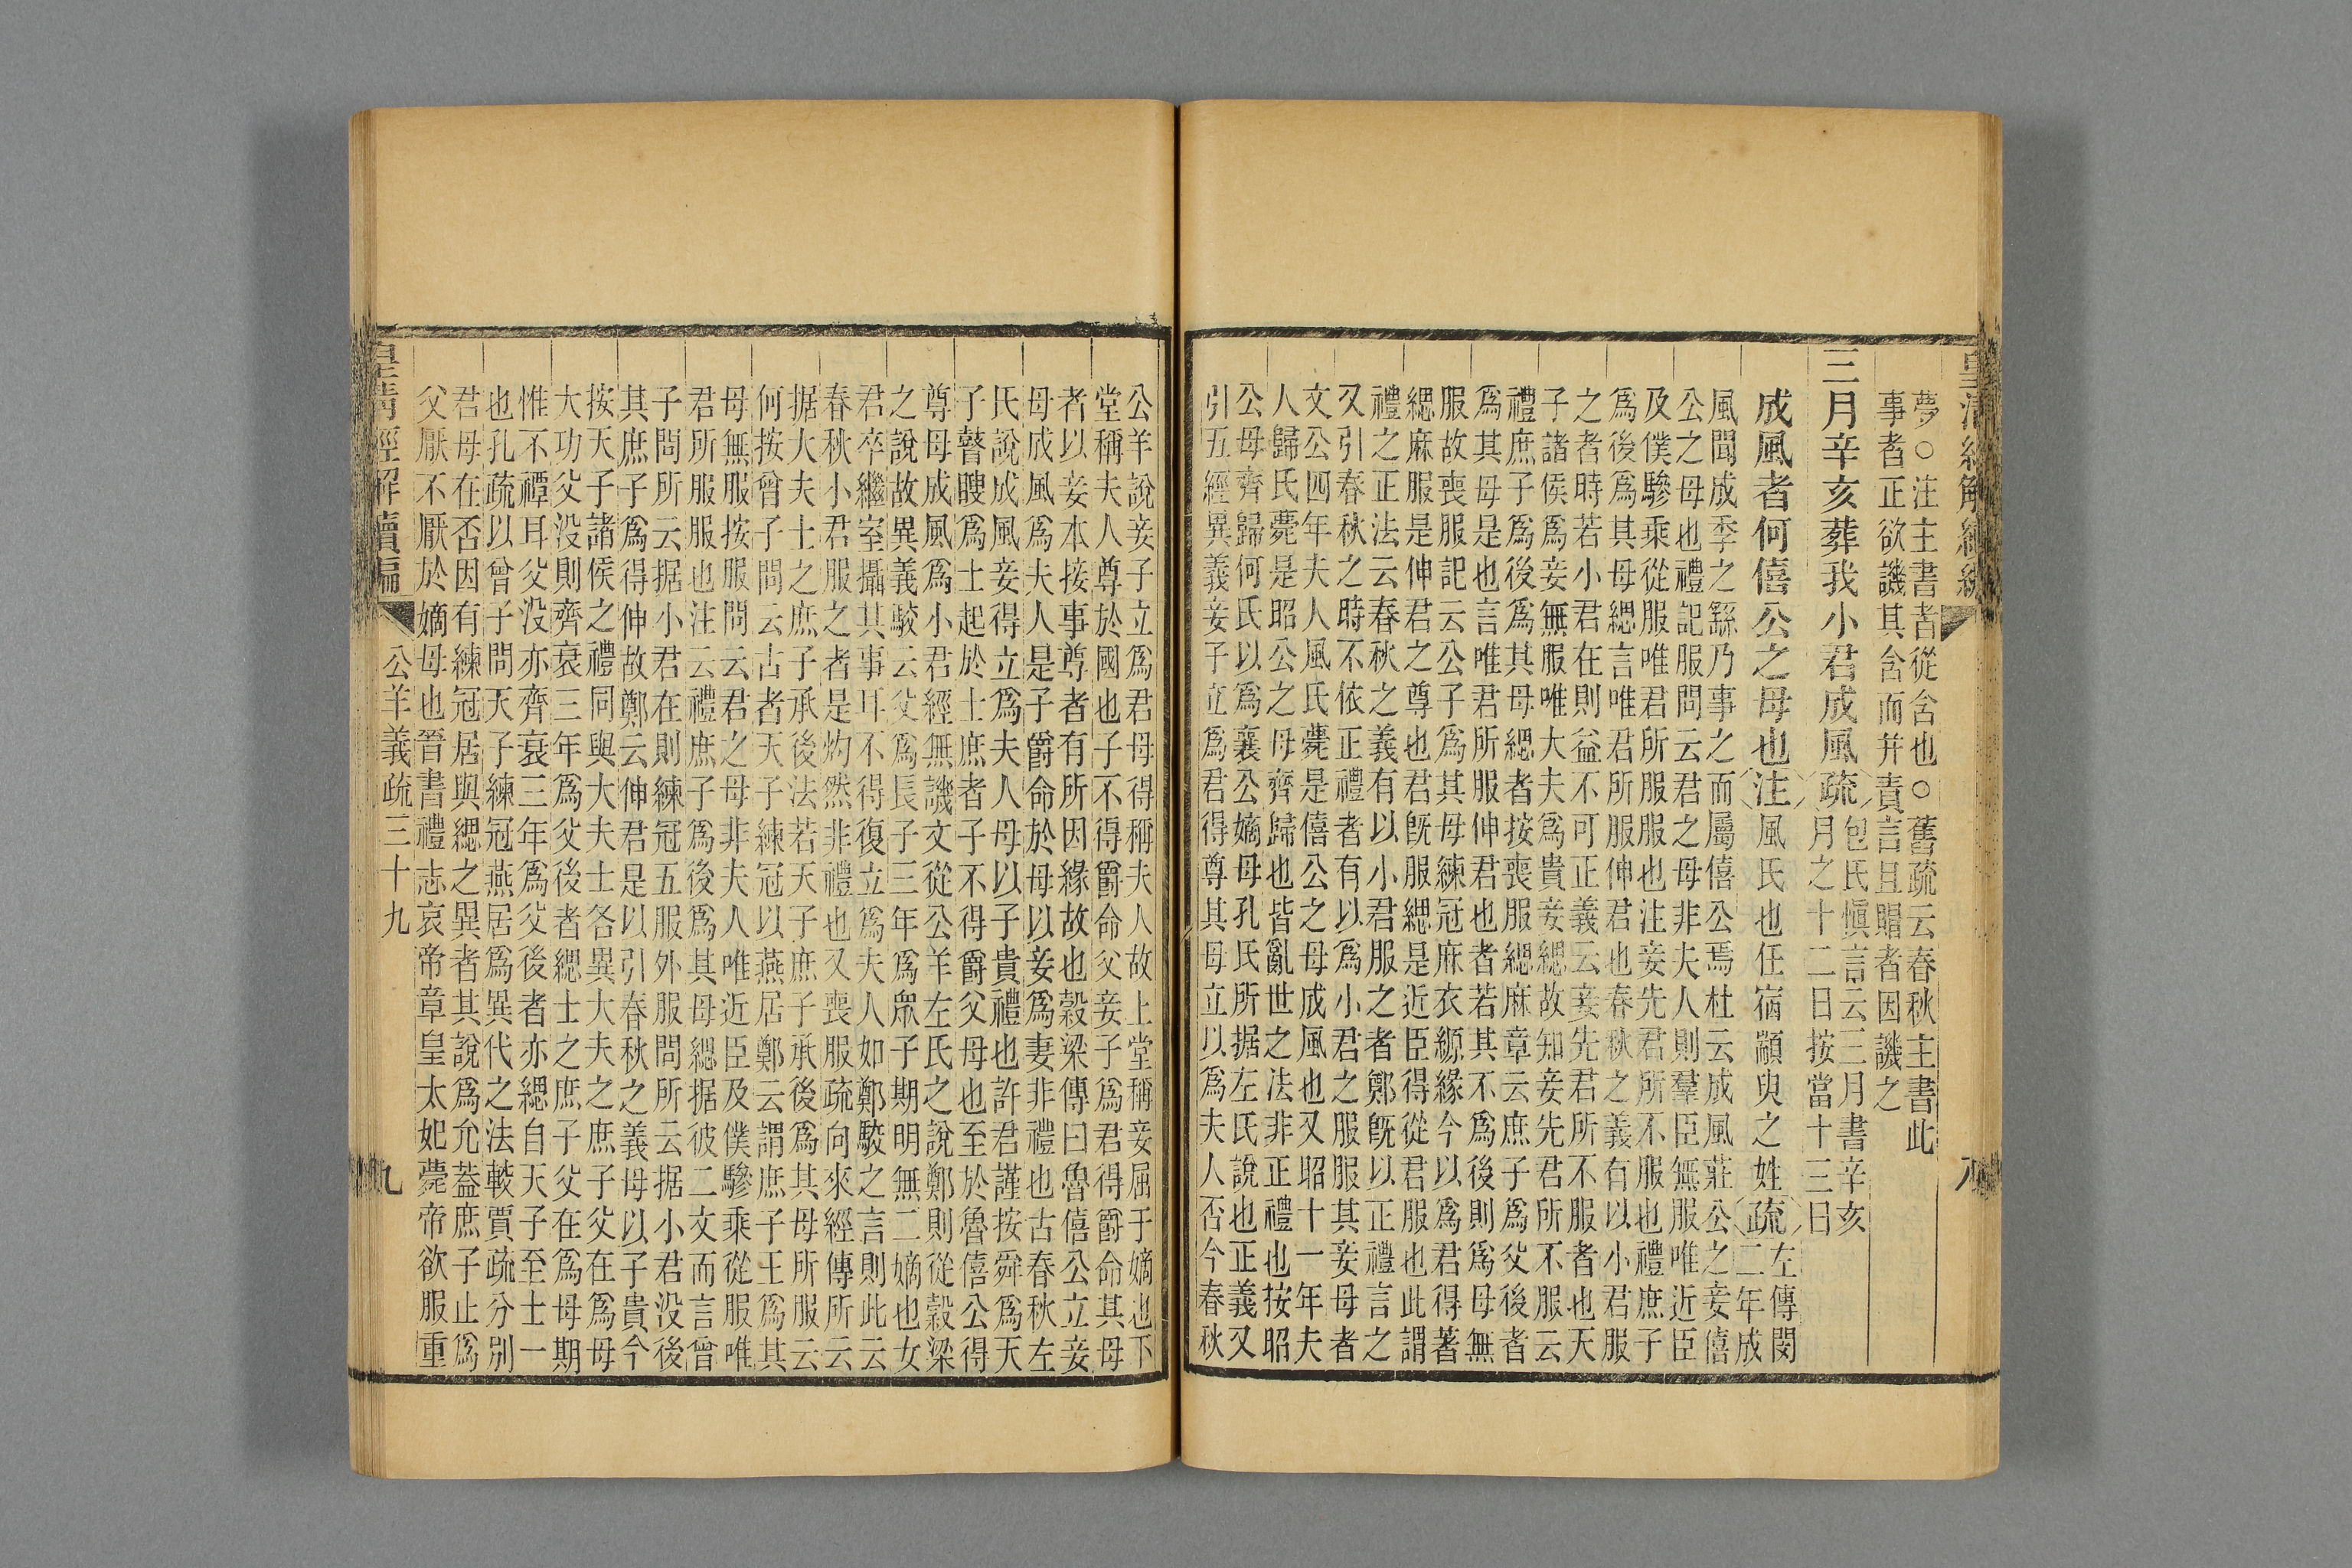 皇清經解續編
八
夢○注主書者從舍也○舊疏云春秋主書此
事者正欲譏其舍而并責言且賵者因譏之
三月辛亥葬我小君成風疏
包氏愼言云三月書辛亥
月之十二日按當十三日
成風者何僖公之母也注風氏也任宿顓臾之姓疏
左傳閔
二年成
風聞成季之繇乃事之而屬僖公焉杜云成風莊公之妾僖
公之母也禮記服問云君之母非夫人則羣臣無服唯近臣
及僕驂乘從服唯君所服服也注妾先君所不服也禮庶子
爲後爲其母緦言唯君所服伸君也春秋之義有以小君服
之者時若小君在則益不可正義云妾先君所不服者也天
子諸侯爲妾無服唯大夫爲貴妾緦故知妾先君所不服云
禮庶子爲後爲其母緦者按喪服緦麻章云庶子爲父後者
爲其母是也言唯君所服伸君也者若其不爲後則爲母無
服故喪服記云公子爲其母練冠麻衣縓緣今以爲君得著
緦麻服是伸君之尊也君旣服緦是近臣得從君服也此謂
禮之正法云春秋之義有以小君服之者鄭旣以正禮言之
又引春秋之時不依正禮者有以爲小君之服服其妾母者
文公四年夫人風氏薨是僖公之母成風也又昭十一年夫
人歸氏薨是昭公之母齊歸也皆亂世之法非正禮也按昭
公母齊歸何氏以爲襄公嫡母孔氏所据左氏說也正義又
引五經異義妾子立爲君得尊其母立以爲夫人否今春秋
公羊說妾子立爲君母得稱夫人故上堂稱妾屈于嫡也下
堂稱夫人尊於國也子不得爵命父妾子爲君得爵命其母
者以妾本接事尊者有所因緣故也穀梁傳曰魯僖公立妾
母成風爲夫人是子爵命於母以妾爲妻非禮也古春秋左
氏說成風妾得立爲夫人母以子貴禮也許君謹按舜爲天
子瞽瞍爲士起於士庶者子不得爵父母也至於魯僖公得
尊母成風爲小君經無譏文從公羊左氏之說鄭則從穀梁
之說故異義駮云父爲長子三年爲眾子期明無二嫡也女
君卒繼室攝其事耳不得復立爲夫人如鄭駮之言則此云
春秋小君服之者是灼然非禮也又喪服疏向來經傳所云
据大夫士之庶子承後法若天子庶子承後爲其母所服云
何按曾子問云古者天子練冠以燕居鄭云謂庶子王爲其
母無服按服問云君之母非夫人唯近臣及僕驂乘從服唯
君所服服也注云禮庶子爲後爲其母緦据彼二文而言曾
子問所云据小君在則練冠五服外服問所云据小君没後
其庶子爲得伸故鄭云伸君是以引春秋之義母以子貴今
按天子諸侯之禮同與大夫士各異大夫之庶子父在爲母
大功父没則齊衰三年爲父後者緦士之庶子父在爲母期
惟不禫耳父没亦齊衰三年爲父後者亦緦自天子至士一
也孔疏以曾子問天子練冠燕居爲異代之法較賈疏分別
君母在否因有練冠居與緦之異者其說爲允蓋庶子止爲
父厭不厭於嫡母也晉書禮志哀帝章皇太妃薨帝欲服重
皇清經解續編
公羊義疏三十九
九